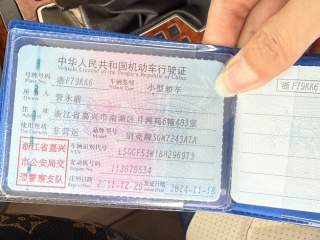 中华人民共和国机动车行驶证
Vehicle License of the People's Republic of China
号牌号码 浙F79KK6 车辆类型 小型轿车
Plate No. Vehicle Type
所有人
Owner
住址 浙江省嘉兴市南湖区月河苑6幢403室
Address
使用性质 非营运 品牌型号 别克牌SGM7243ATA
Use Character Model
浙江省嘉兴
市公安局交
通警察支队
车辆识别代号
VIN
发动机号码
Engine No.
注册日期 2011-12-23 发证日期 2024-11-18
Register Date Issue Date
浙F79KK6